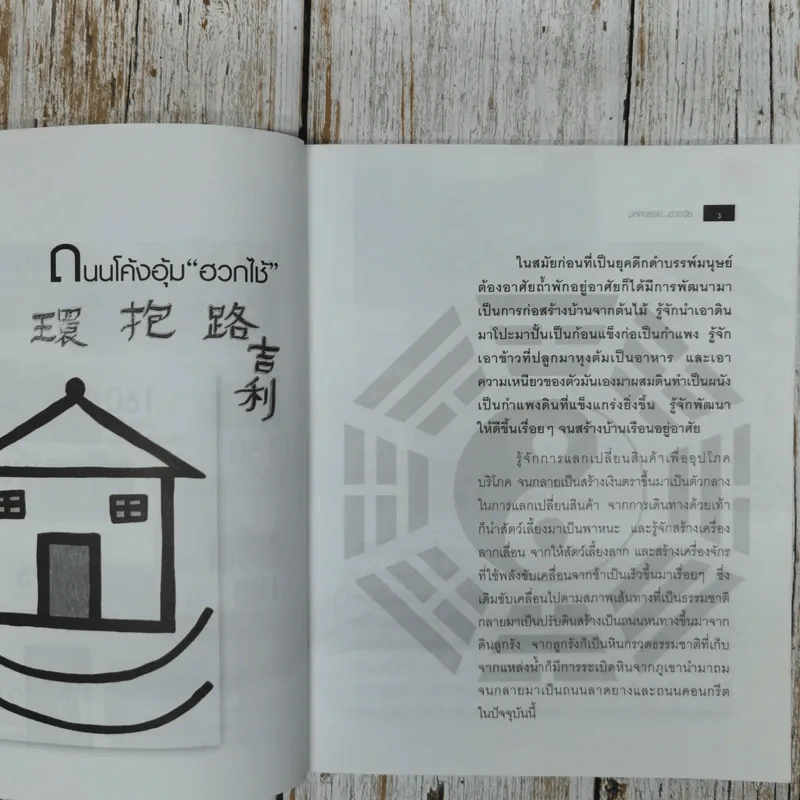 ถนนโค้งอุ้ม“ฮวกไช้”
環 抱 路
吉利
3
ในสมัยก่อนที่เป็นยุคดึกดำบรรพ์มนุษย์
ต้องอาศัยถ้ำพักอยู่อาศัยก็ได้มีการพัฒนามา
เป็นการก่อสร้างบ้านจากต้นไม้ รู้จักนำเอาดิน
มาโปะมาปั้นเป็นก้อนแข็งก่อเป็นกำแพง รู้จัก
เอาข้าวที่ปลูกมาหุงต้มเป็นอาหาร และเอา
ความเหนียวของตัวมันเองมาผสมดินทำเป็นผนัง
เป็นกำแพงดินที่แข็งแกร่งยิ่งขึ้น รู้จักพัฒนา
ให้ดีขึ้นเรื่อยๆ จนสร้างบ้านเรือนอยู่อาศัย
รู้จักการแลกเปลี่ยนสินค้าเพื่ออุปโภค
บริโภค จนกลายเป็นสร้างเงินตราขึ้นมาเป็นตัวกลาง
ในการแลกเปลี่ยนสินค้า จากการเดินทางด้วยเท้า
ก็นำสัตว์เลี้ยงมาเป็นพาหนะ และรู้จักสร้างเครื่อง
ลากเลื่อน จากให้สัตว์เลี้ยงลาก และสร้างเครื่องจักร
ที่ใช้พลังขับเคลื่อนจากช้าเป็นเร็วขึ้นมาเรื่อยๆ ซึ่ง
เดิมขับเคลื่อนไปตามสภาพเส้นทางที่เป็นธรรมชาติ
กลายมาเป็นปรับดินสร้างเป็นถนนหนทางขึ้นมาจาก
ดินลูกรัง จากลูกรังก็เป็นหินกรวดธรรมชาติที่เก็บ
จากแหล่งน้ำก็มีการระเบิดหินจากภูเขานำมาถม
จนกลายมาเป็นถนนลาดยางและถนนคอนกรีต
ในปัจจุบันนี้